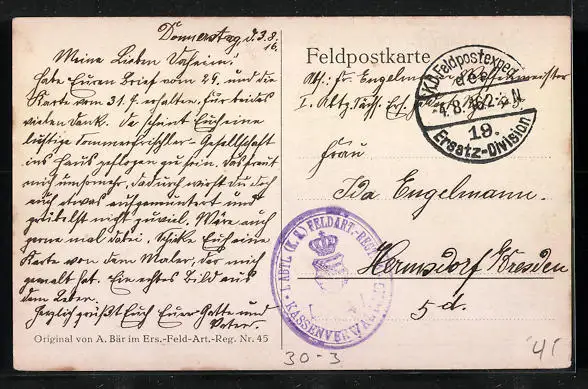 Donnerstag d. 3.8.16.
Meine Lieben Daheim!
Habe Euren Brief vom 29. und die
Karte vom 31.7. erhalten. Für beides
vielen Dank. Da scheint Euch eine
lustige Sommerfrischler-Gesellschaft
ins Haus geflogen zu sein. Das freut
mich umsomehr, dadurch wirst Du doch
auch etwas aufgemuntert und
grübelst nicht zuviel. Wäre auch
gerne mal dabei. Schicke Euch eine
Karte von dem Maler, der mich
gemalt hat. Ein echtes Bild aus
dem Leben.
Herzlich grüßt Euch Euer Gatte und
Vater.
Original von A. Bär im Ers.-Feld-Art.-Reg. Nr. 45
Feldpostkarte
Abs: Fr. Engelmann
I. Abtg. Sächs. Ers.
K.D. Feldpostexped.
der
4.8.16
19.
Ersatz-Division
Frau
Ida Engelmann.
Hermsdorf/Dresden
5 d.
I. ABTL. (K.S.) FELDART.-REG.
KASSENVERWALTUNG
30-3
41